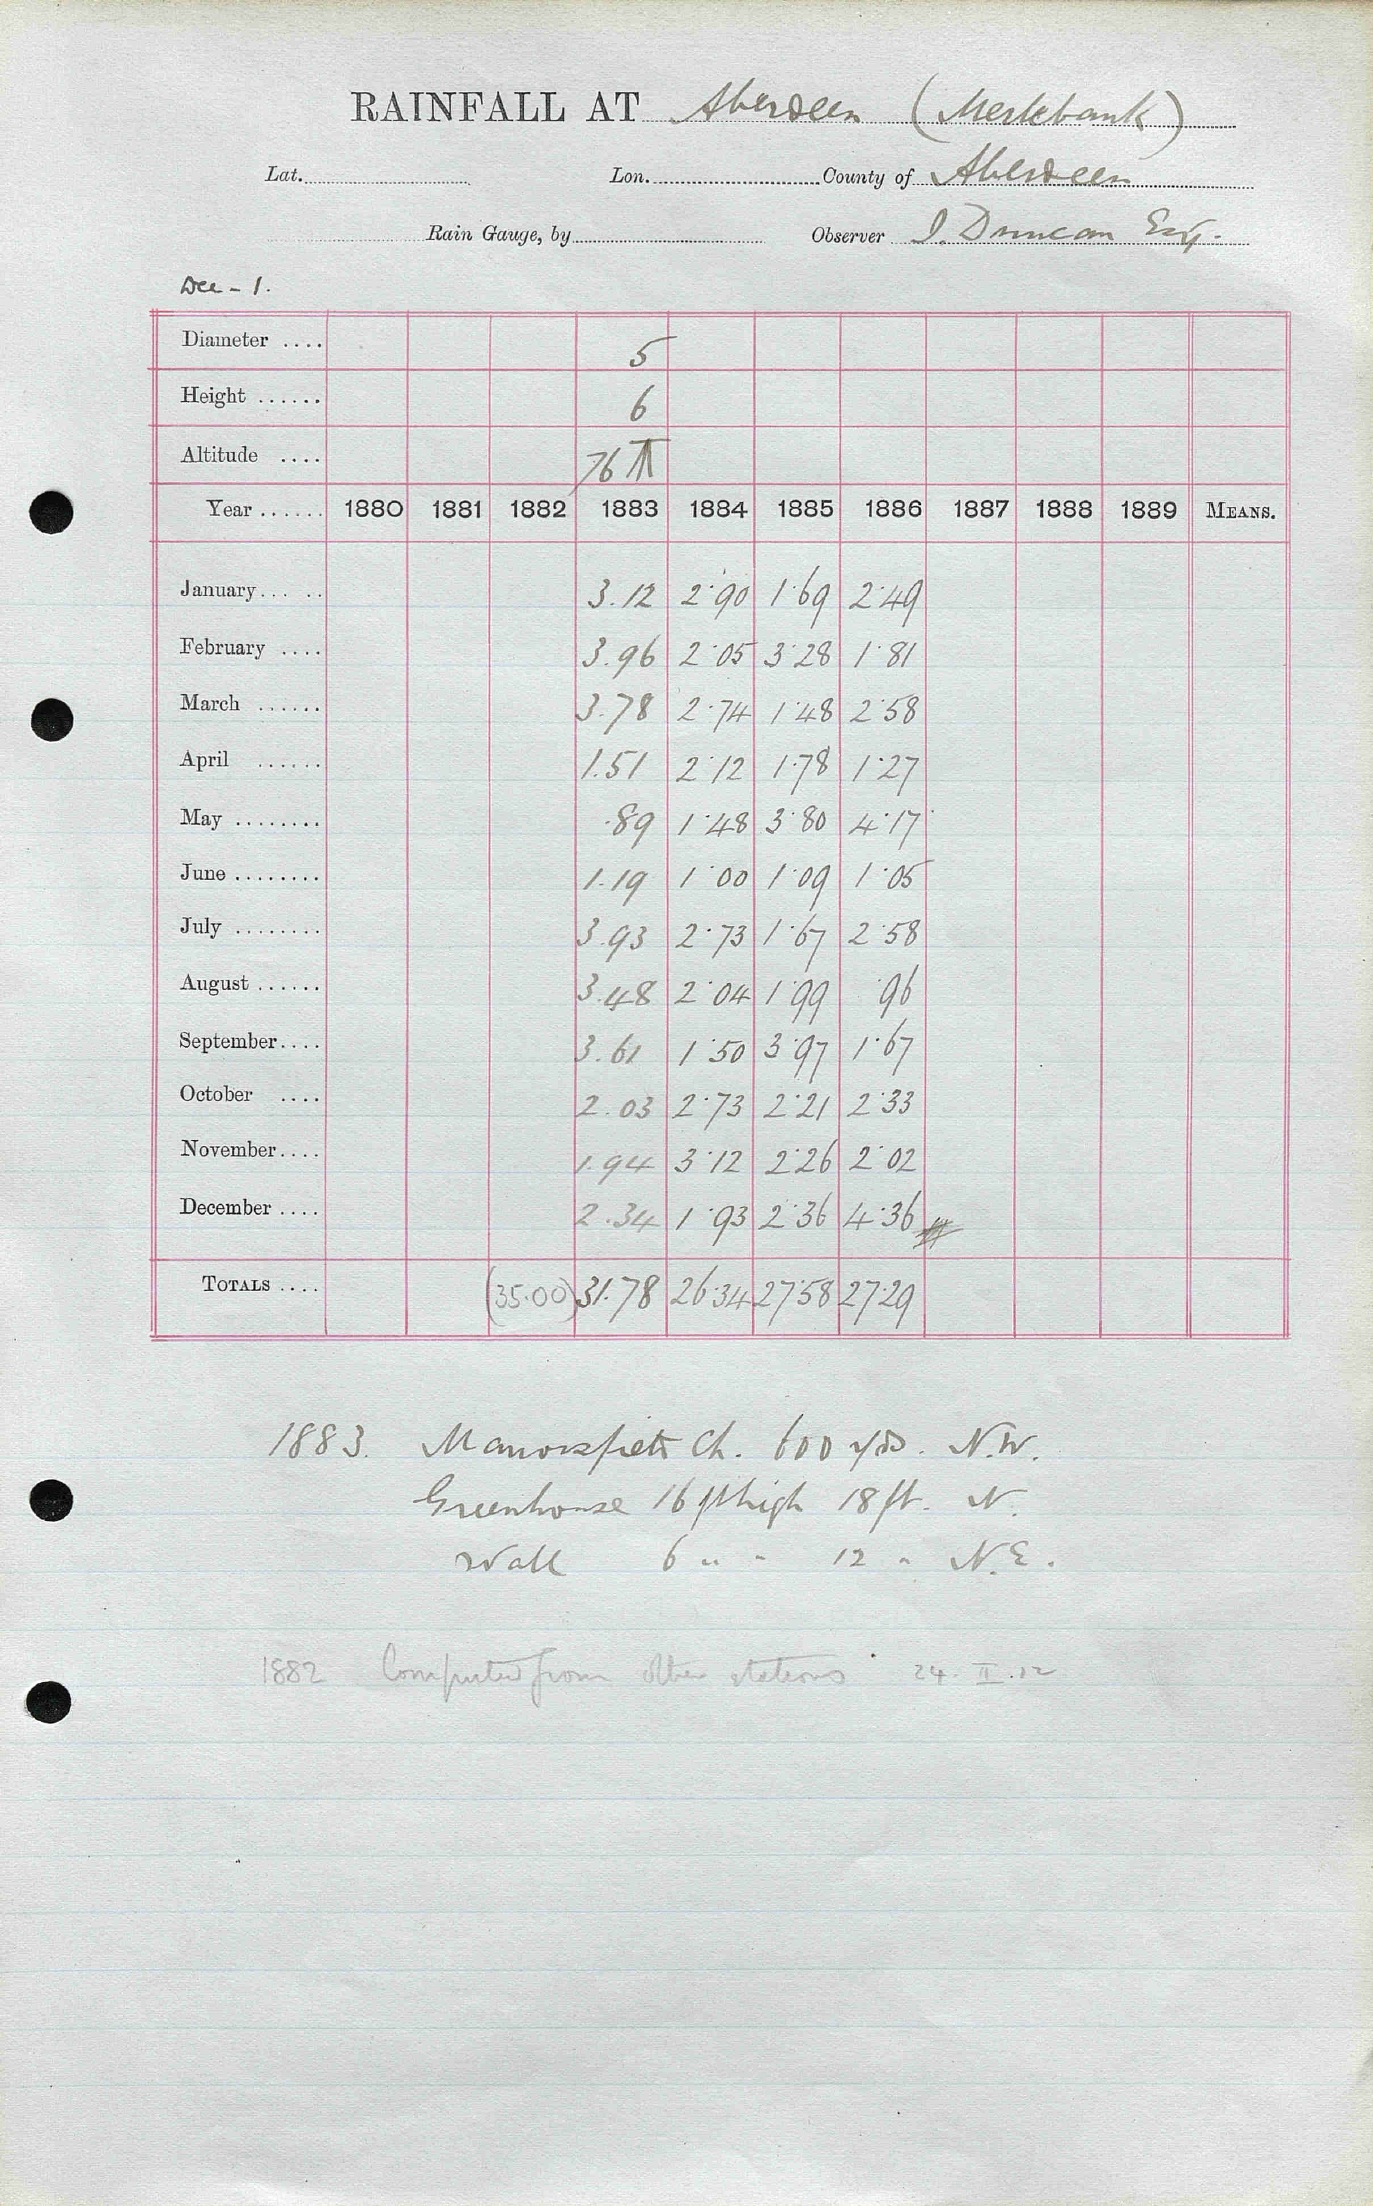 RAINFALL AT Aberdeen (Merkbank)
Lat. Lon. County of Aberdeen
Rain Gauge, by Observer J. Duncan Esq.
Dee - 1.
Diameter .... 5
Height ...... 6
Altitude .... 76
Year ...... 1880 1881 1882 1883 1884 1885 1886 1887 1888 1889 MEANS.
January... .. 3.12 2.90 1.69 2.49
February .... 3.96 2.05 3.28 1.81
March ...... 3.78 2.74 1.48 2.58
April ...... 1.51 2.12 1.78 1.27
May ........ .89 1.48 3.80 4.17
June ........ 1.19 1.00 1.09 1.05
July ........ 3.93 2.73 1.67 2.58
August ...... 3.48 2.04 1.99 .96
September.... 3.61 1.50 3.97 1.67
October .... 2.03 2.73 2.21 2.33
November.... 1.94 3.12 2.26 2.02
December .... 2.34 1.93 2.36 4.36
TOTALS .... (35.00) 31.78 26.34 27.58 27.29
1883. Ch. 600 yds. N.W.
Greenhouse 16 ft high 18 ft. N.
Wall 6 " " 12 " N.E.
1882 Computed from other stations 24.II.12